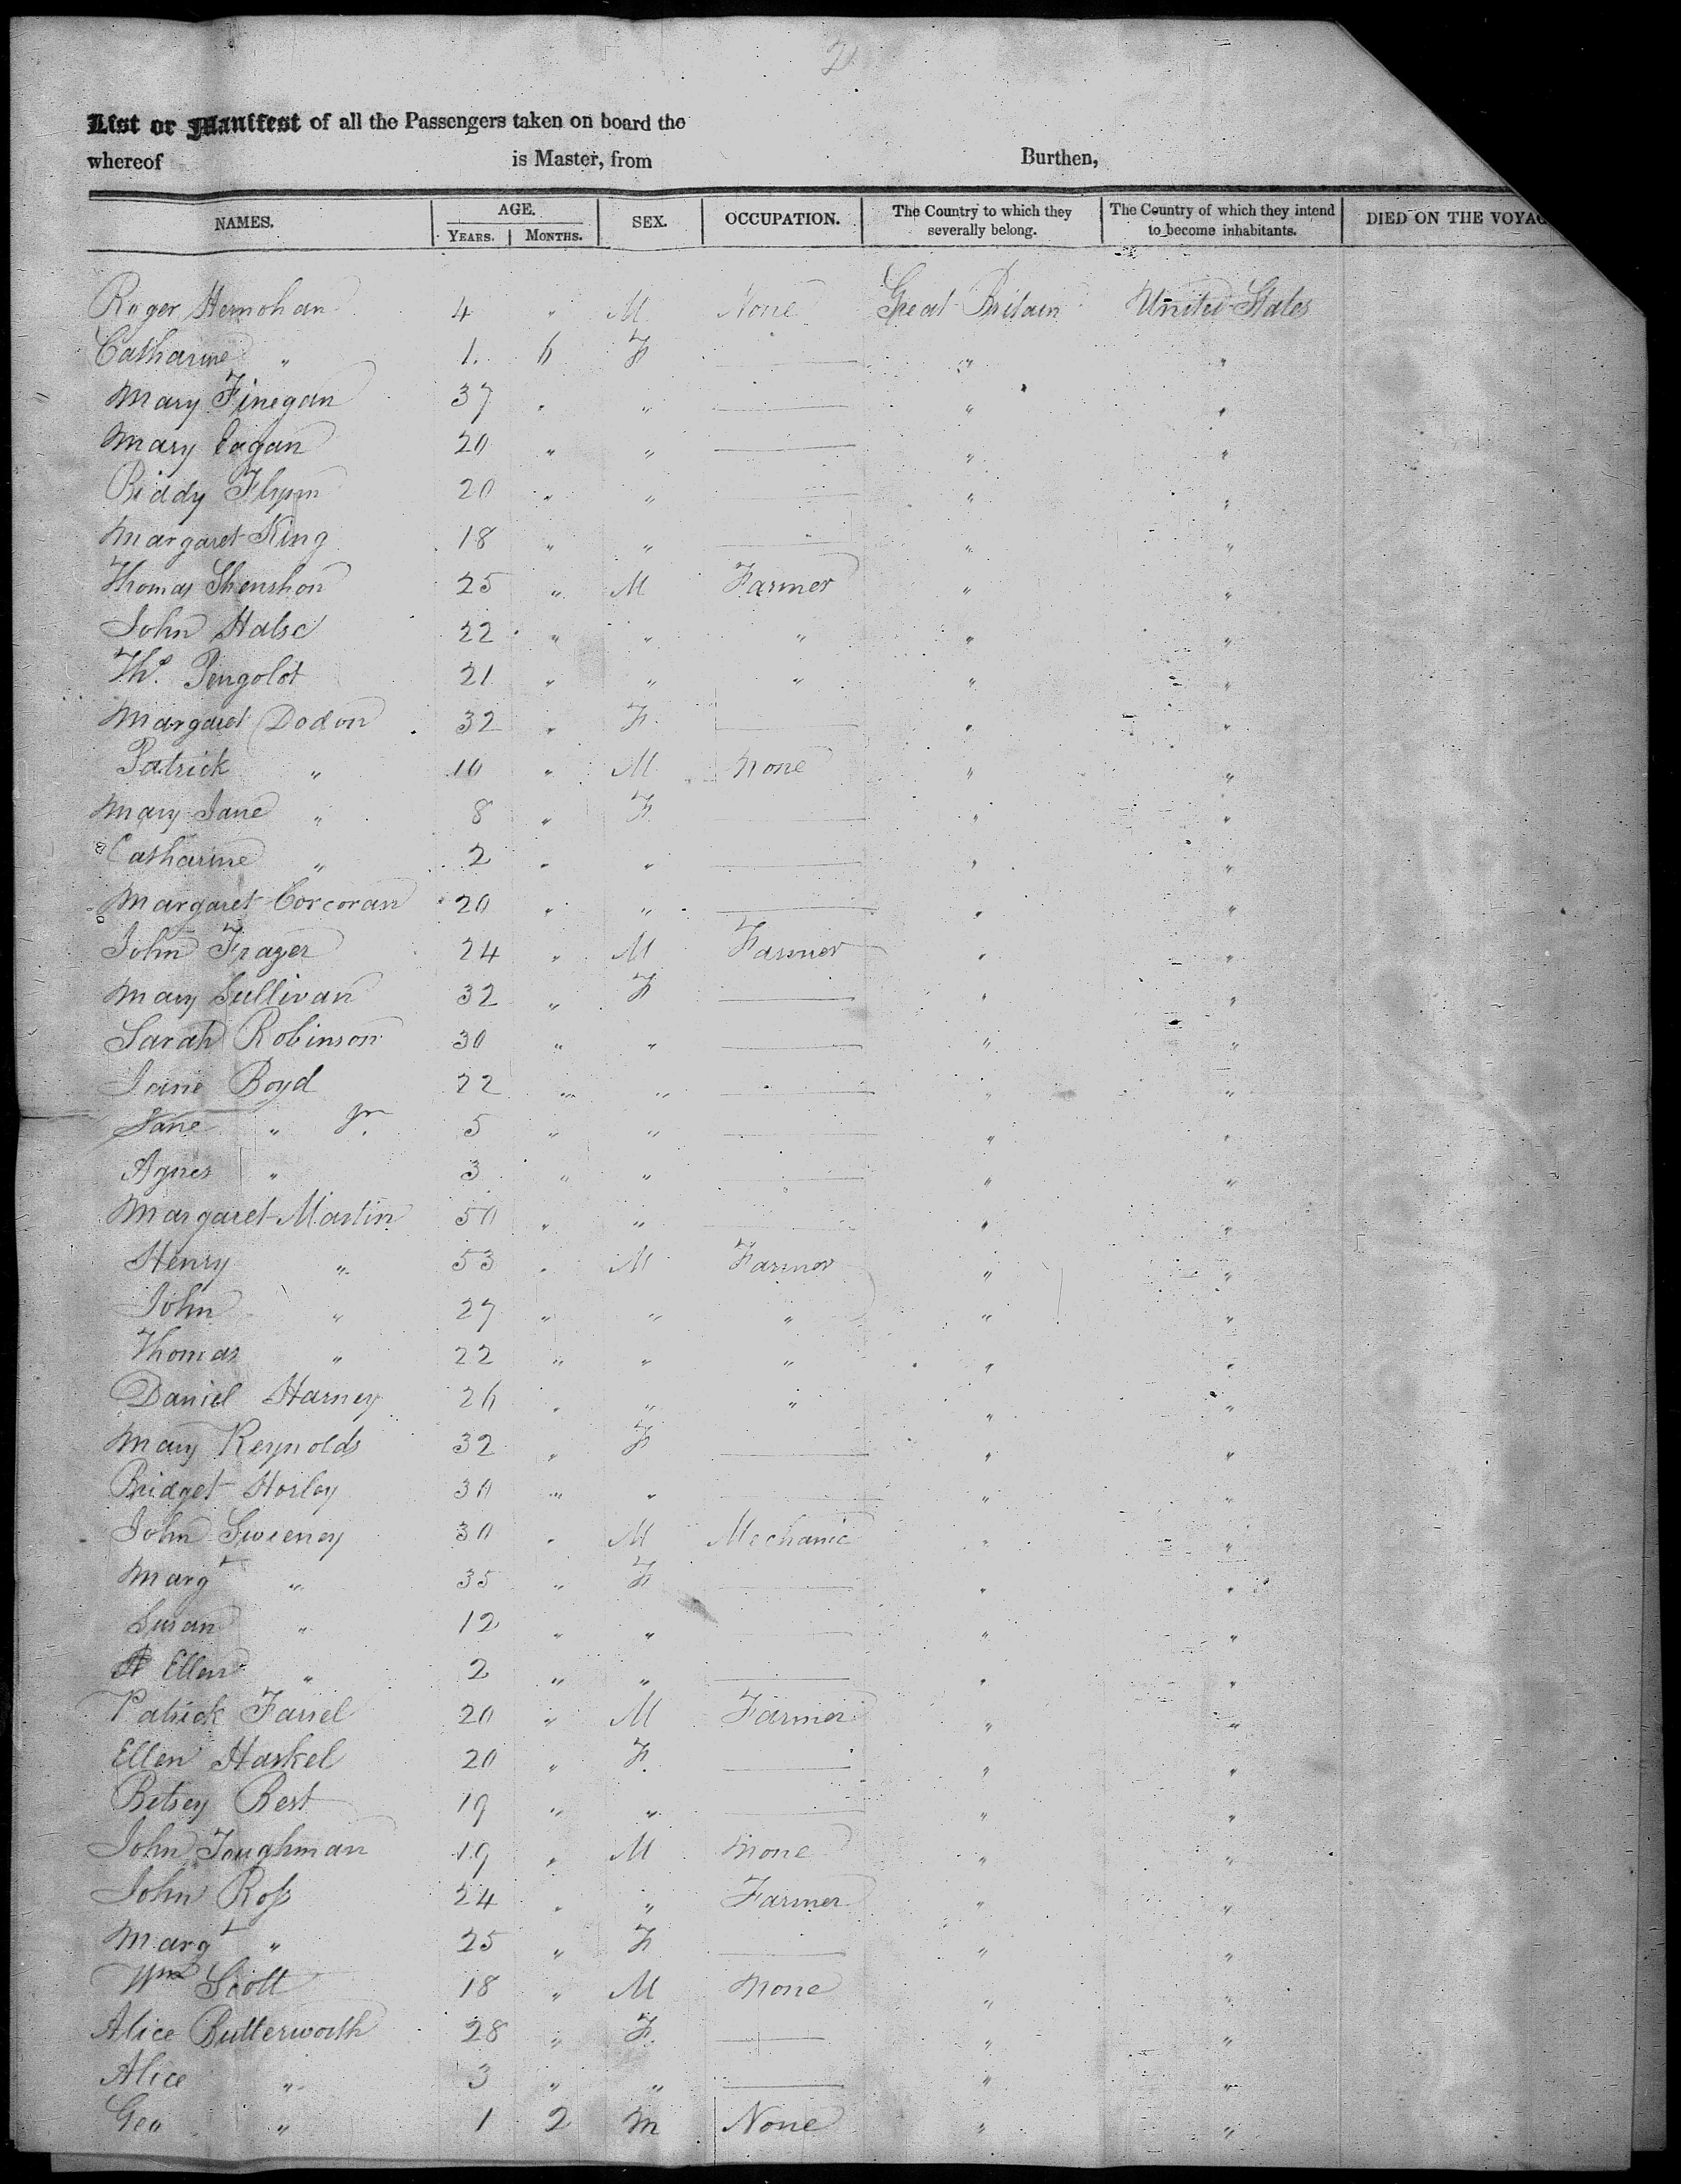 2
List or Manifest of all the Passengers taken on board the
whereof is Master, from Burthen,
NAMES. AGE. YEARS. MONTHS. SEX. OCCUPATION. The Country to which they severally belong. The Country of which they intend to become inhabitants. DIED ON THE VOYAG
Roger Hernohan 4 " M None Great Britain United States
Catharine " 1 6 F — " "
Mary Finegan 37 " " — " "
Mary Eagan 20 " " — " "
Biddy Flynn 20 " " — " "
Margaret King 18 " " — " "
Thomas Shenshon 25 " M Farmer " "
John Halse 22 " " " " "
Tho. Pengolot 21 " " " " "
Margaret Dodon 32 " F — " "
Patrick " 10 " M None " "
Mary Jane " 8 " F — " "
Catharine " 2 " " — " "
Margaret Corcoran 20 " " — " "
John Frazer 24 " M Farmer " "
Mary Sullivan 32 " F — " "
Sarah Robinson 30 " " — " "
Jane Boyd 22 " " — " "
Jane " Jr. 5 " " — " "
Agnes " 3 " " — " "
Margaret Martin 50 " " — " "
Henry " 53 " M Farmer " "
John " 27 " " " " "
Thomas " 22 " " " " "
Daniel Harney 26 " " " " "
Mary Reynolds 32 " F — " "
Bridget Horley 30 " " — " "
John Sweeney 30 " M Mechanic " "
Margt " 35 " F — " "
Susan " 12 " " — " "
Ellen " 2 " " — " "
Patrick Farrel 20 " M Farmer " "
Ellen Haskel 20 " F — " "
Betsey Best 19 " " — " "
John Toughman 19 " M None " "
John Ross 24 " " Farmer " "
Margt " 25 " F — " "
Wm Scott 18 " M None " "
Alice Butterworth 28 " F — " "
Alice " 3 " " — " "
Geo " 1 2 M None " "